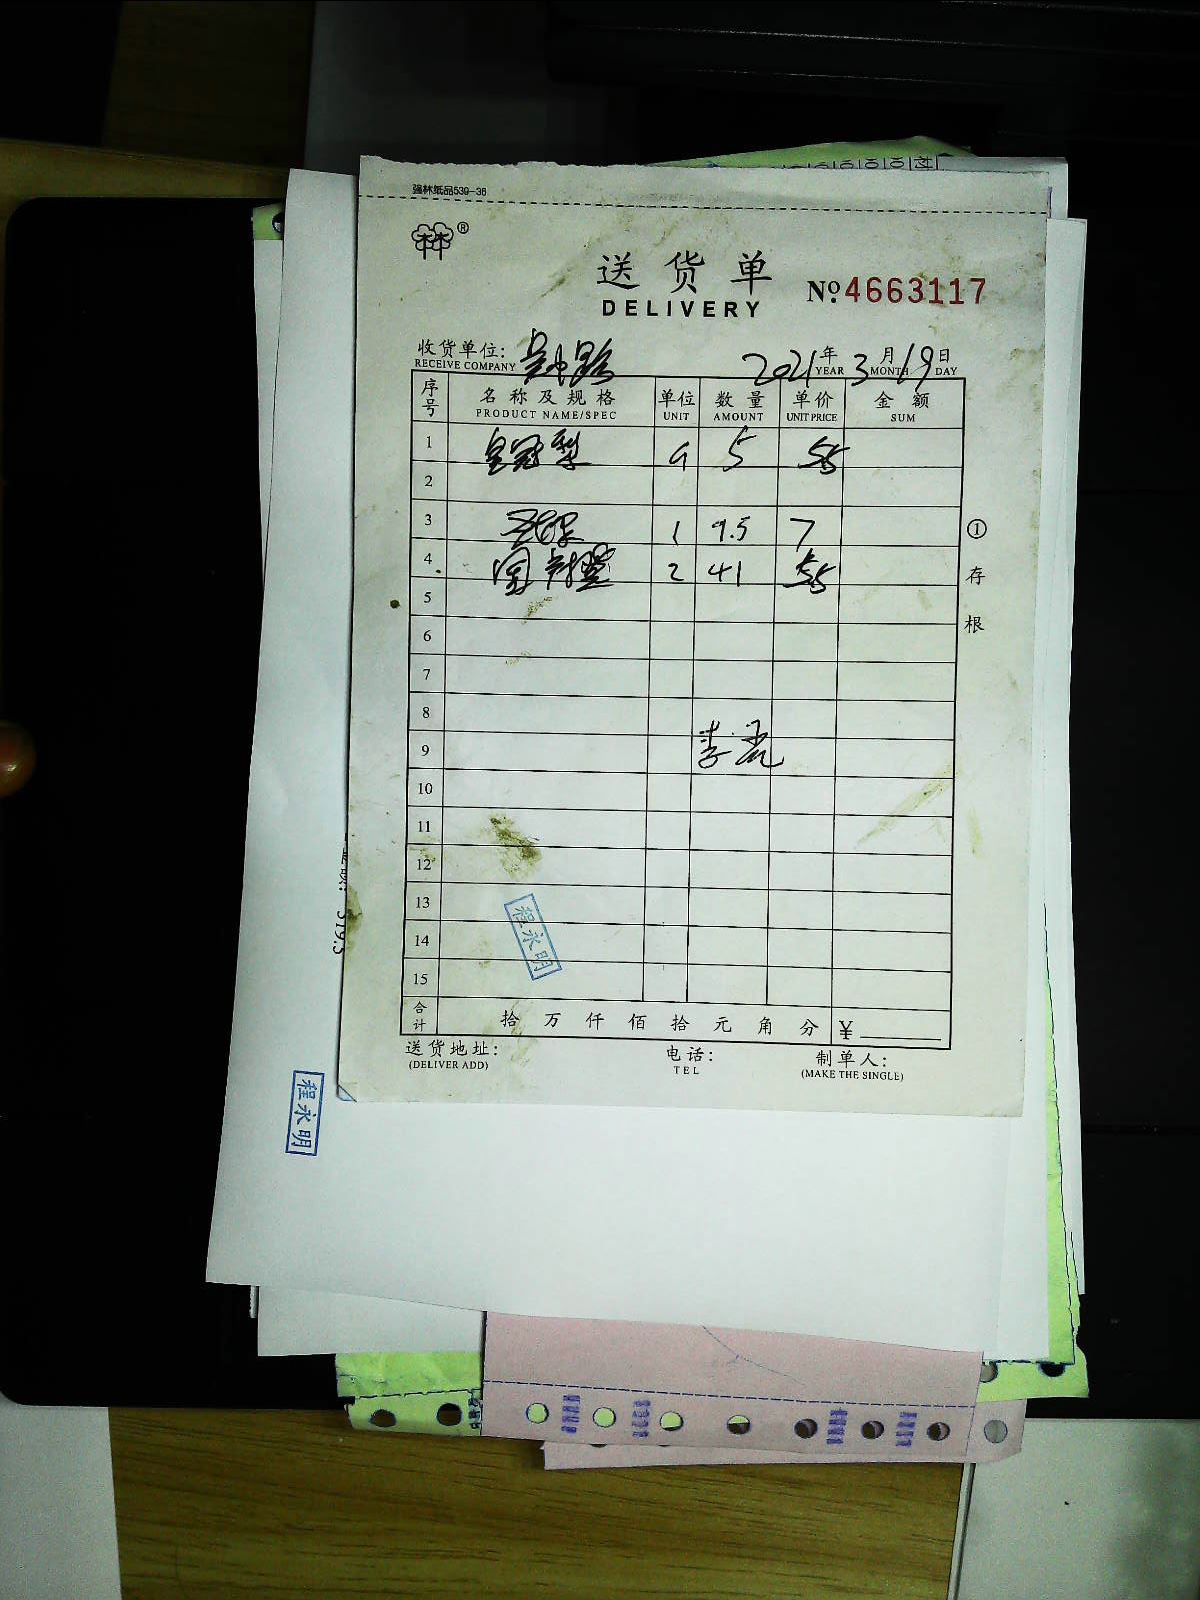 强林纸品539-36
林林®
送货单 №4663117
DELIVERY
收货单位: 2021年3月19日
RECEIVE COMPANY YEAR MONTH DAY
序号 名称及规格 单位 数量 单价 金额
PRODUCT NAME/SPEC UNIT AMOUNT UNIT PRICE SUM
1 皇冠梨 5
2
3 1 9.5 7
4 2 41
5
6
7
8
9 李亮
10
11
12
13
14
15
合计 拾万仟佰拾元角分 ¥
送货地址: 电话: 制单人:
(DELIVER ADD) TEL (MAKE THE SINGLE)
①存根
程永明
程永明
519.5